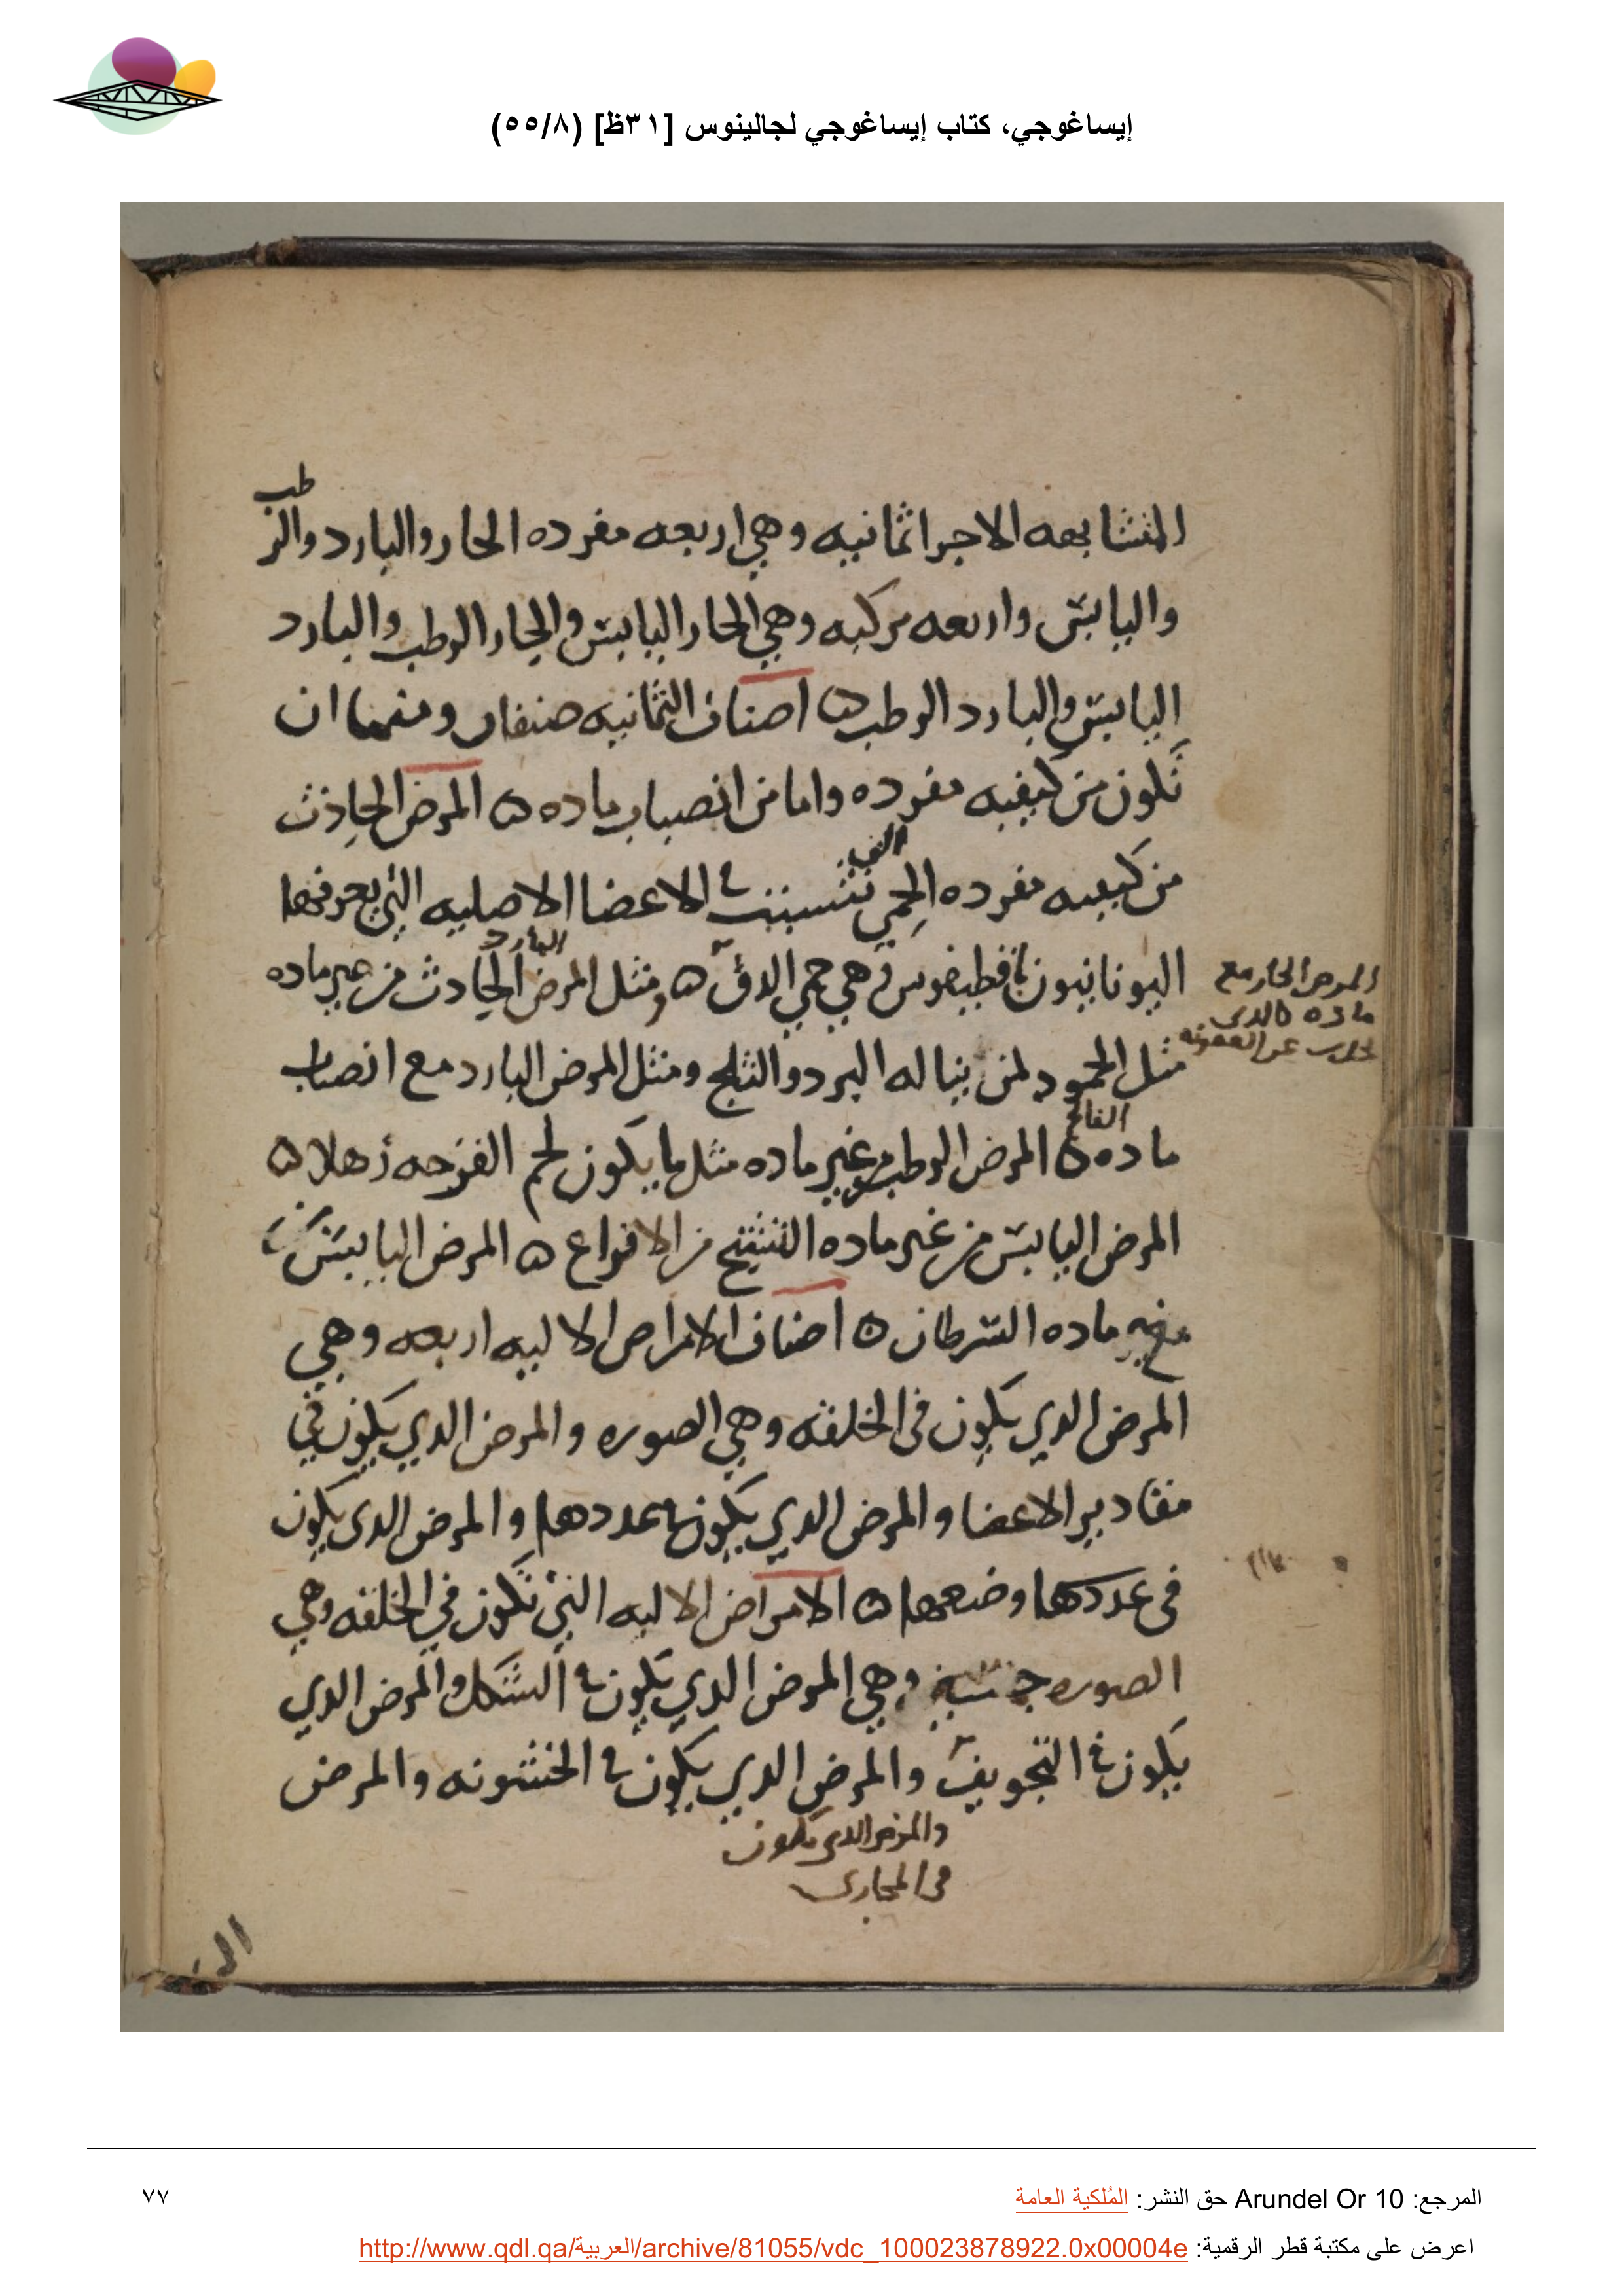 إيساغوجي، كتاب إيساغوجي لجالينوس [٣١ظ] (٥٥/٨)
المتشابهه الاجزا ثمانيه وهي اربعه مفرده الحار والبارد والرطب
واليابس واربعه مركبه وهي الحار اليابس والحار الرطب والبارد
اليابس والبارد الرطب ه اصناف الثمانيه صنفان ومنها ان
تكون من كيفيه مفرده واما من انصباب ماده ه المرض الحادث
من كيفيه مفرده الحمى التي تتشبث في الاعضا الاصليه التي يعرفها
اليونانيون هي حمى الدق ه ومثل المرض البارد الحادث من غير ماده
المرض الحار مع
ماده كالدى
عن العفونه
مثل الجمود لمن يناله البرد والثلج ومثل المرض البارد مع انصباب
ماده الفالج ه المرض الرطب من غير ماده مثل ما يكون لحم القرحه رهلا ه
المرض اليابس من غير ماده التشنج من الافراع ه المرض اليابس
ماده السرطان ه اصناف الامراض الاليه اربعه وهي
المرض الدي يكون فى الخلقه وهي الصوره والمرض الدي يكون في
مقادير الاعضا والمرض الدي يكون في عددها والمرض الدى يكون
فى عددها وضعها ه الامراض الاليه التي تكون في الخلقه وهي
الصوره وهي المرض الدي يكون في الشكل والمرض الدي
يكون في التجويف والمرض الدي يكون في الخشونه والمرض
والمرض الدى يكون
فى المجارى
المرجع: Arundel Or 10 حق النشر: المُلكية العامة
٧٧
اعرض على مكتبة قطر الرقمية: http://www.qdl.qa/العربية/archive/81055/vdc_100023878922.0x00004e